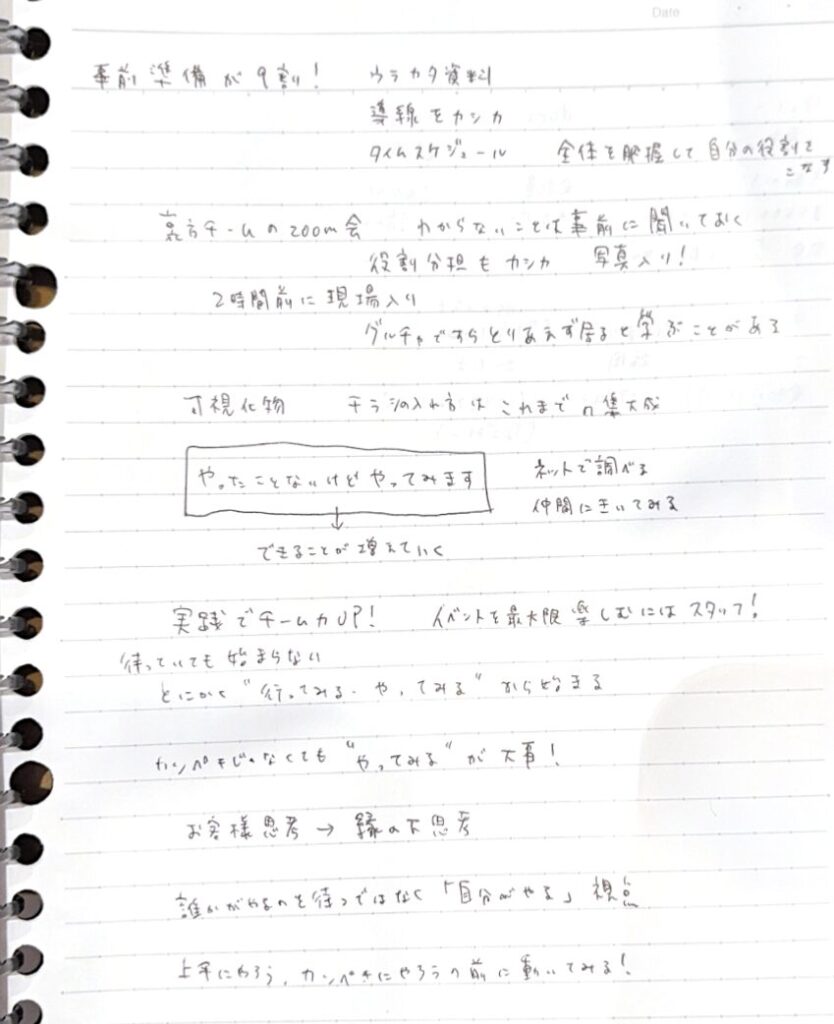 Date
事前準備が9割! ウラカタ資料
導線をカシカ
タイムスケジュール 全体を把握して自分の役割を
こなす
裏方チームのzoom会 わからないことは事前に聞いておく
役割分担もカシカ 写真入り!
2時間前に現場入り
グルチャですらとりあえず居ると学ぶことがある
可視化物 チラシの入れ方は これまでの集大成
やったことないけど やってみます ネットで調べる
仲間にきいてみる
↓
できることが増えていく
実践でチーム力UP! イベントを最大限 楽しむにはスタッフ!
待っていても始まらない
とにかく "行ってみる・やってみる" から始まる
カンペキじゃなくても "やってみる" が大事!
お客様思考 → 縁の下思考
誰かがやるのを待つではなく「自分がやる」視点
上手にやろう、カンペキにやろうの前に動いてみる!